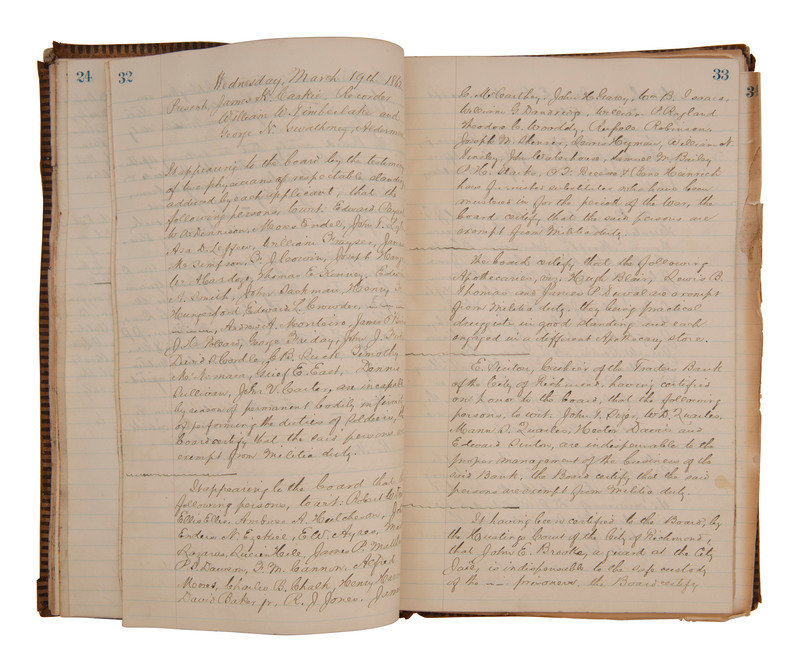 24
32
Wednesday, March 19th 186
Present, James K. Caskie, Recorder
William W. Timberlake and
George N. Gwathmey, Aldermen
It appearing to the board by the testimony
of two physicians of respectable standing
adduced by each applicant, that the
following persons, to wit: Edward
W. A. Dennison, Moses Endel, John T.
Asa D. Leffew, William Frayser, James
Mc Simpson, F. J. Cowin, Joseph
W. Hardey, Thomas E. Kenney, Edw
A. Smith, John Sackman, Henry
Hungerford, Edward L. Crowder,
Andrew A. Mountain, James P.
J. D. George Friday, John J.
David B. Cardle, C. B. Ruck, Timothy
Mc Namara, Grief E. East, Dennis
Sullivan, John V. Carter, are incapable
by reason of permanent bodily infirmity
of performing the duties of Soldiers, the
board certify that the said persons are
exempt from Militia duty.
It appearing to the board that the
following persons, to wit: Robert
Ellis Ellis, Ambrose A. Hutcherson, Jo
Enders N. Ezekiel, E. W. Ayres,
Lazarus, Hale, James P.
P. S. Dawson, F. M. Cannon, Alfred
Moses, Charles B. Chalk, Henry
David Baker jr., R. J. Jones, Jam
33
G. McCarthey, John H. Greaney, Wm B. Isaacs,
William G. Dandridge, William P. Ragland
Theodore C. Rafael Robinson,
Joseph W. Levi Hyman, William N.
John Waterhouse, Samuel M. Bailey
P. H. Starke, & Hennich
have furnished substitutes who have been
mustered in for the period of the war, the
board certify that the said persons are
exempt from Militia duty.
The board certify that the following
Apothecaries, viz: Hugh Blair, Lewis B.
Thomas and James P. Duval are exempt
from Militia duty, they being practical
druggists in good standing and each
engaged in a different Apothecary store.
E. Denton, Cashier of the Traders Bank
of the City of Richmond, having certified
on honor to the board, that the following
persons, to wit: John F. W. D. Quarles,
Mann S. Quarles, Hector Davis and
Edward Denton, are indispensable to the
proper management of the business of the
said Bank, the Board certify that the said
persons are exempt from Militia duty.
It having been certified to the Board, by
the Hustings Court of the City of Richmond,
that John E. Brooke, a guard at the City
Jail, is indispensable to the safe custody
of the prisoners, the Board certify